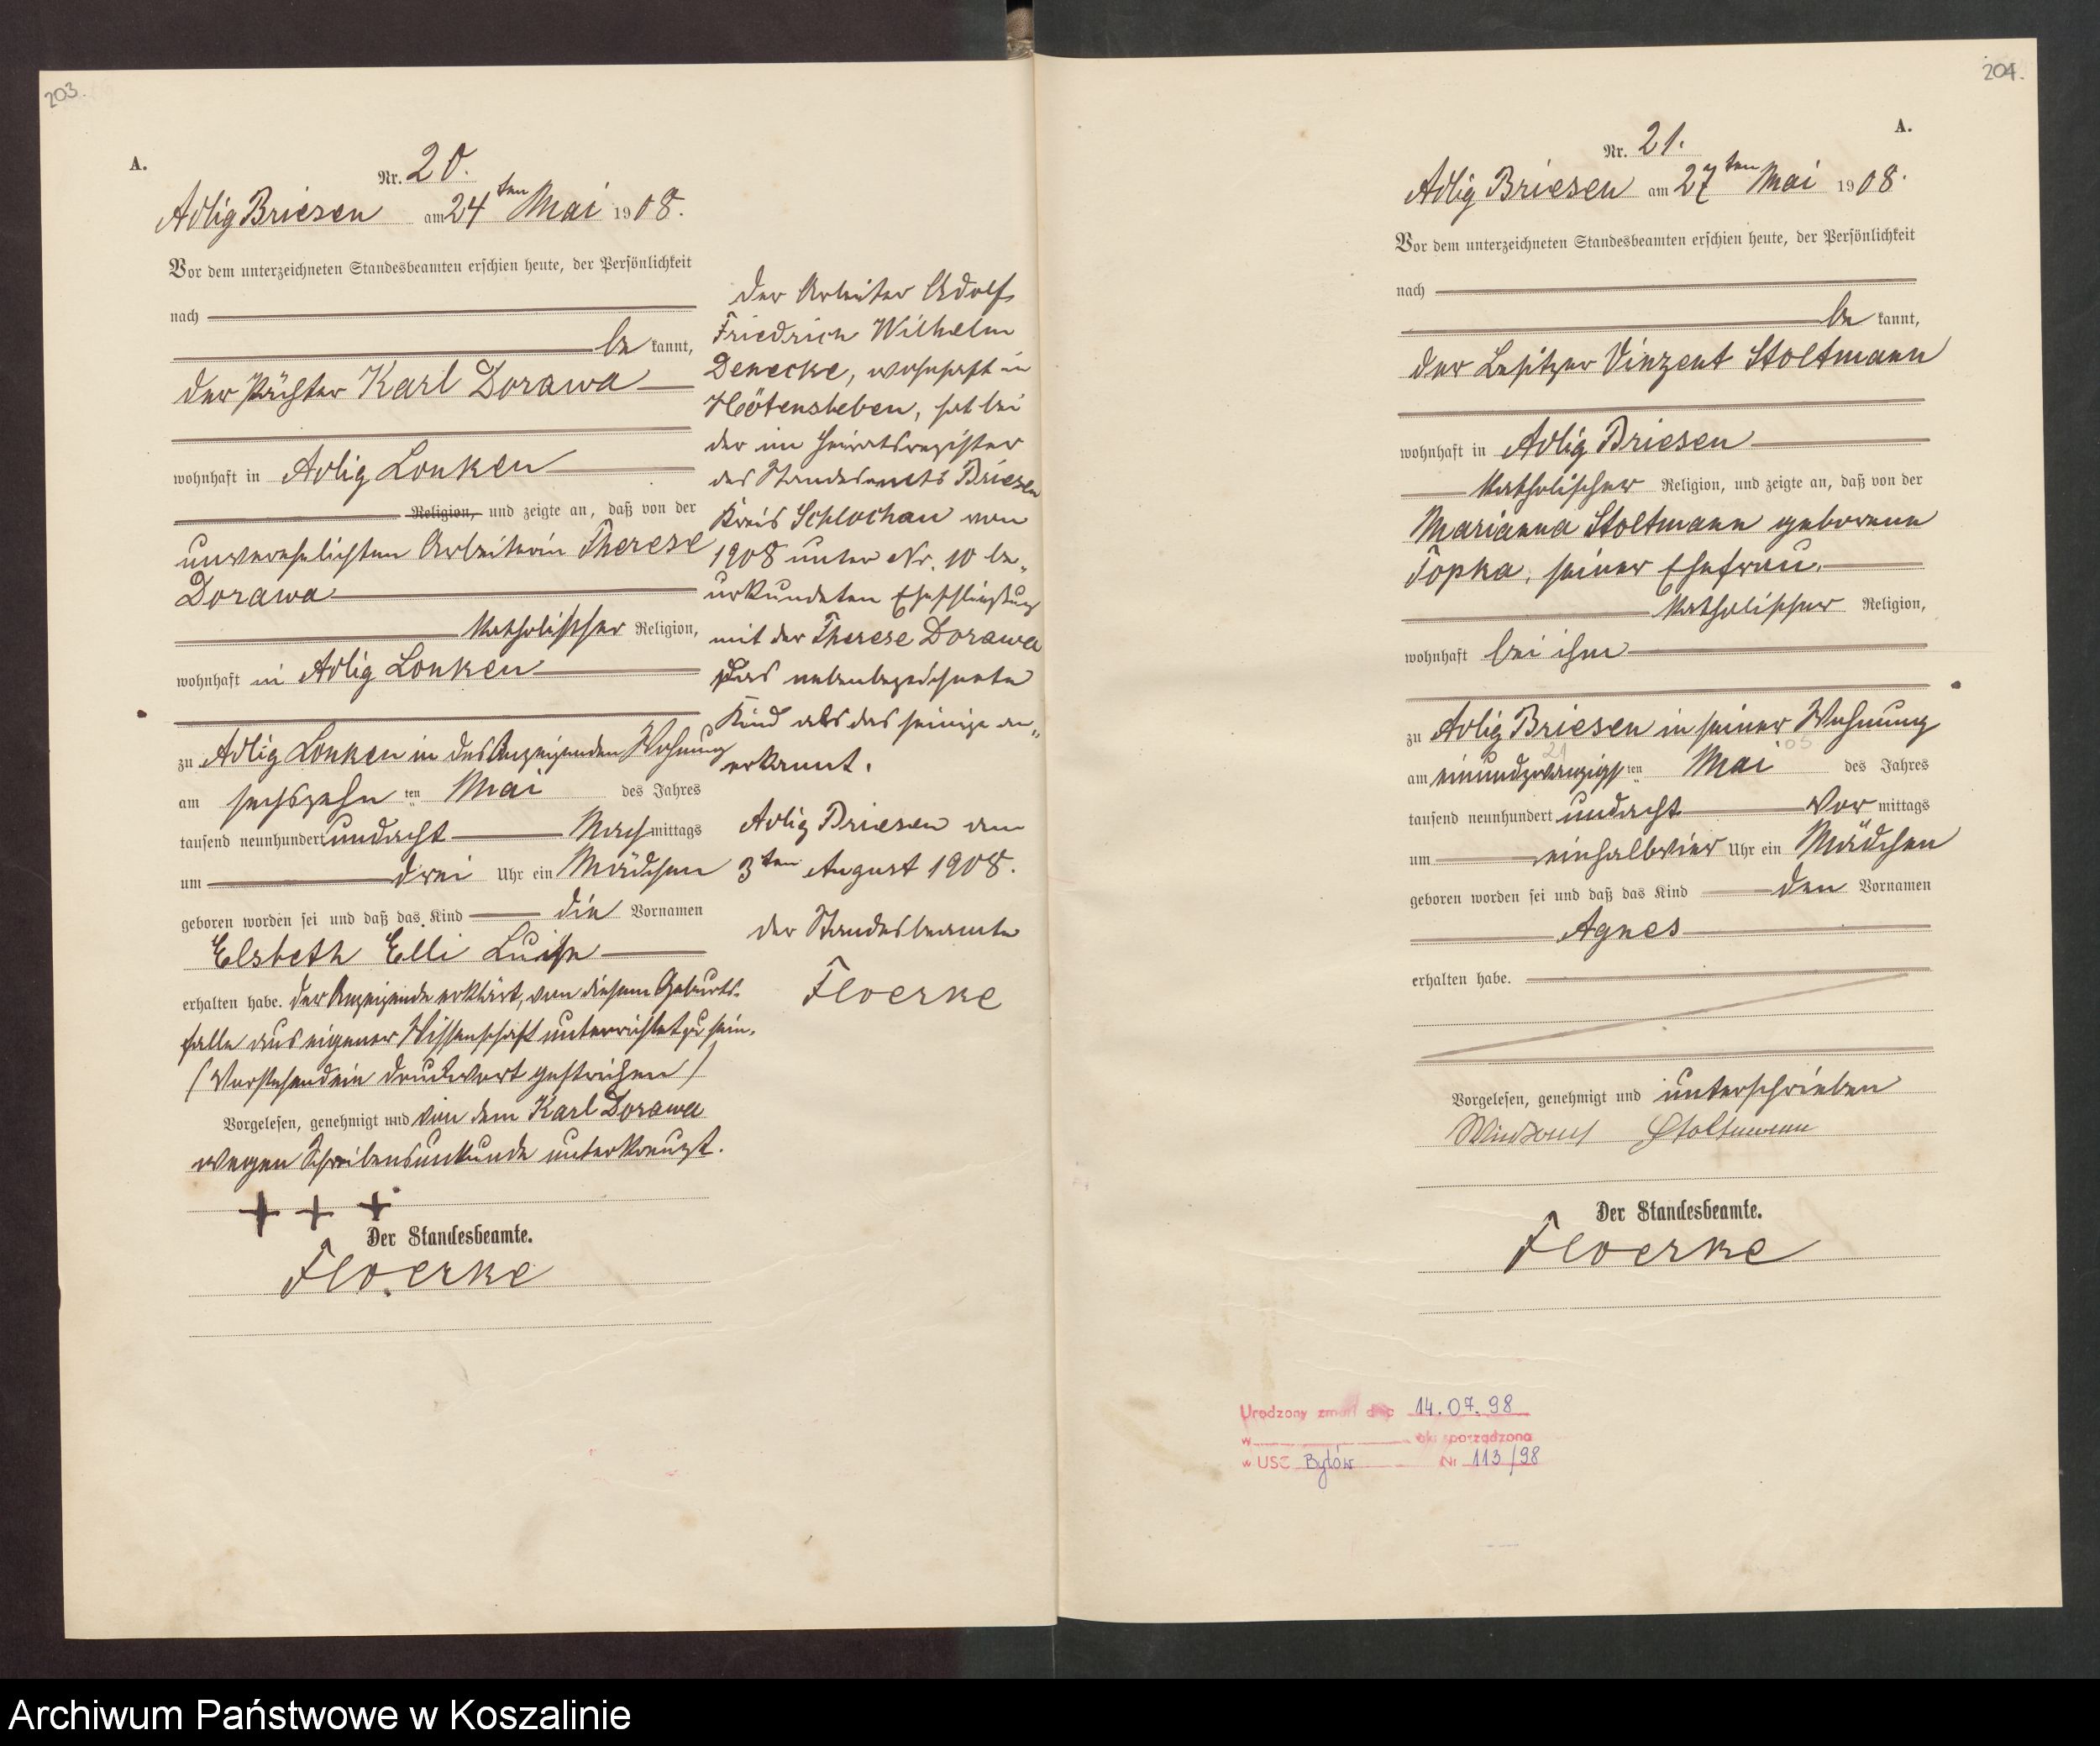 203.
A.
Nr. 20.
Adlig Briesen am 24ten Mai 1908.
Vor dem unterzeichneten Standesbeamten erschien heute, der Persönlichkeit
nach
be kannt,
der Pächter Karl Dorawa
wohnhaft in Adlig Lonken
Religion, und zeigte an, daß von der
unverehelichten Arbeiterin Therese
Dorawa
katholischer Religion,
wohnhaft in Adlig Lonken
zu Adlig Lonken in des Anzeigenden Wohnung
am sechszehn ten Mai des Jahres
tausend neunhundert undacht Nach mittags
um drei Uhr ein Mädchen
geboren worden sei und daß das Kind die Vornamen
Elsbeth Elli Luise
erhalten habe. Der Anzeigende erklärt, von diesem Geburts-
falle aus eigener Wissenschaft unterrichtet zu sein.
(Vorstehend ein Druckwort gestrichen)
Vorgelesen, genehmigt und von dem Karl Dorawa
wegen Schreibensunkunde unterkreuzt.
+ + +
Der Standesbeamte.
Floerke
Der Arbeiter Adolf
Friedrich Wilhelm
Denecke, wohnhaft in
Hötensleben, hat bei
der im Heiratsregister
des Standesamts Briesen
Kreis Schlochau von
1908 unter Nr. 10 be„
urkundeten Eheschließung
mit der Therese Dorawa
das nebenbezeichnete
Kind als das seinige an„
erkannt.
Adlig Briesen am
3ten August 1908.
Der Standesbeamte
Floerke
204.
A.
Nr. 21.
Adlig Briesen am 27ten Mai 1908.
Vor dem unterzeichneten Standesbeamten erschien heute, der Persönlichkeit
nach
be kannt,
der Besitzer Vinzent Stoltmann
wohnhaft in Adlig Briesen
katholischer Religion, und zeigte an, daß von der
Marianna Stoltmann geborene
Topka, seiner Ehefrau,
katholischer Religion,
wohnhaft bei ihm
zu Adlig Briesen in seiner Wohnung
21 05
am einundzwanzigs ten Mai des Jahres
tausend neunhundert undacht Vor mittags
um einhalbvier Uhr ein Mädchen
geboren worden sei und daß das Kind den Vornamen
Agnes
erhalten habe.
Vorgelesen, genehmigt und unterschrieben
Stoltmann
Der Standesbeamte.
Floerke
Urodzony zmarł dnia 14.07.98
w akt sporządzono
w USC Bytów Nr 113/98
Archiwum Państwowe w Koszalinie